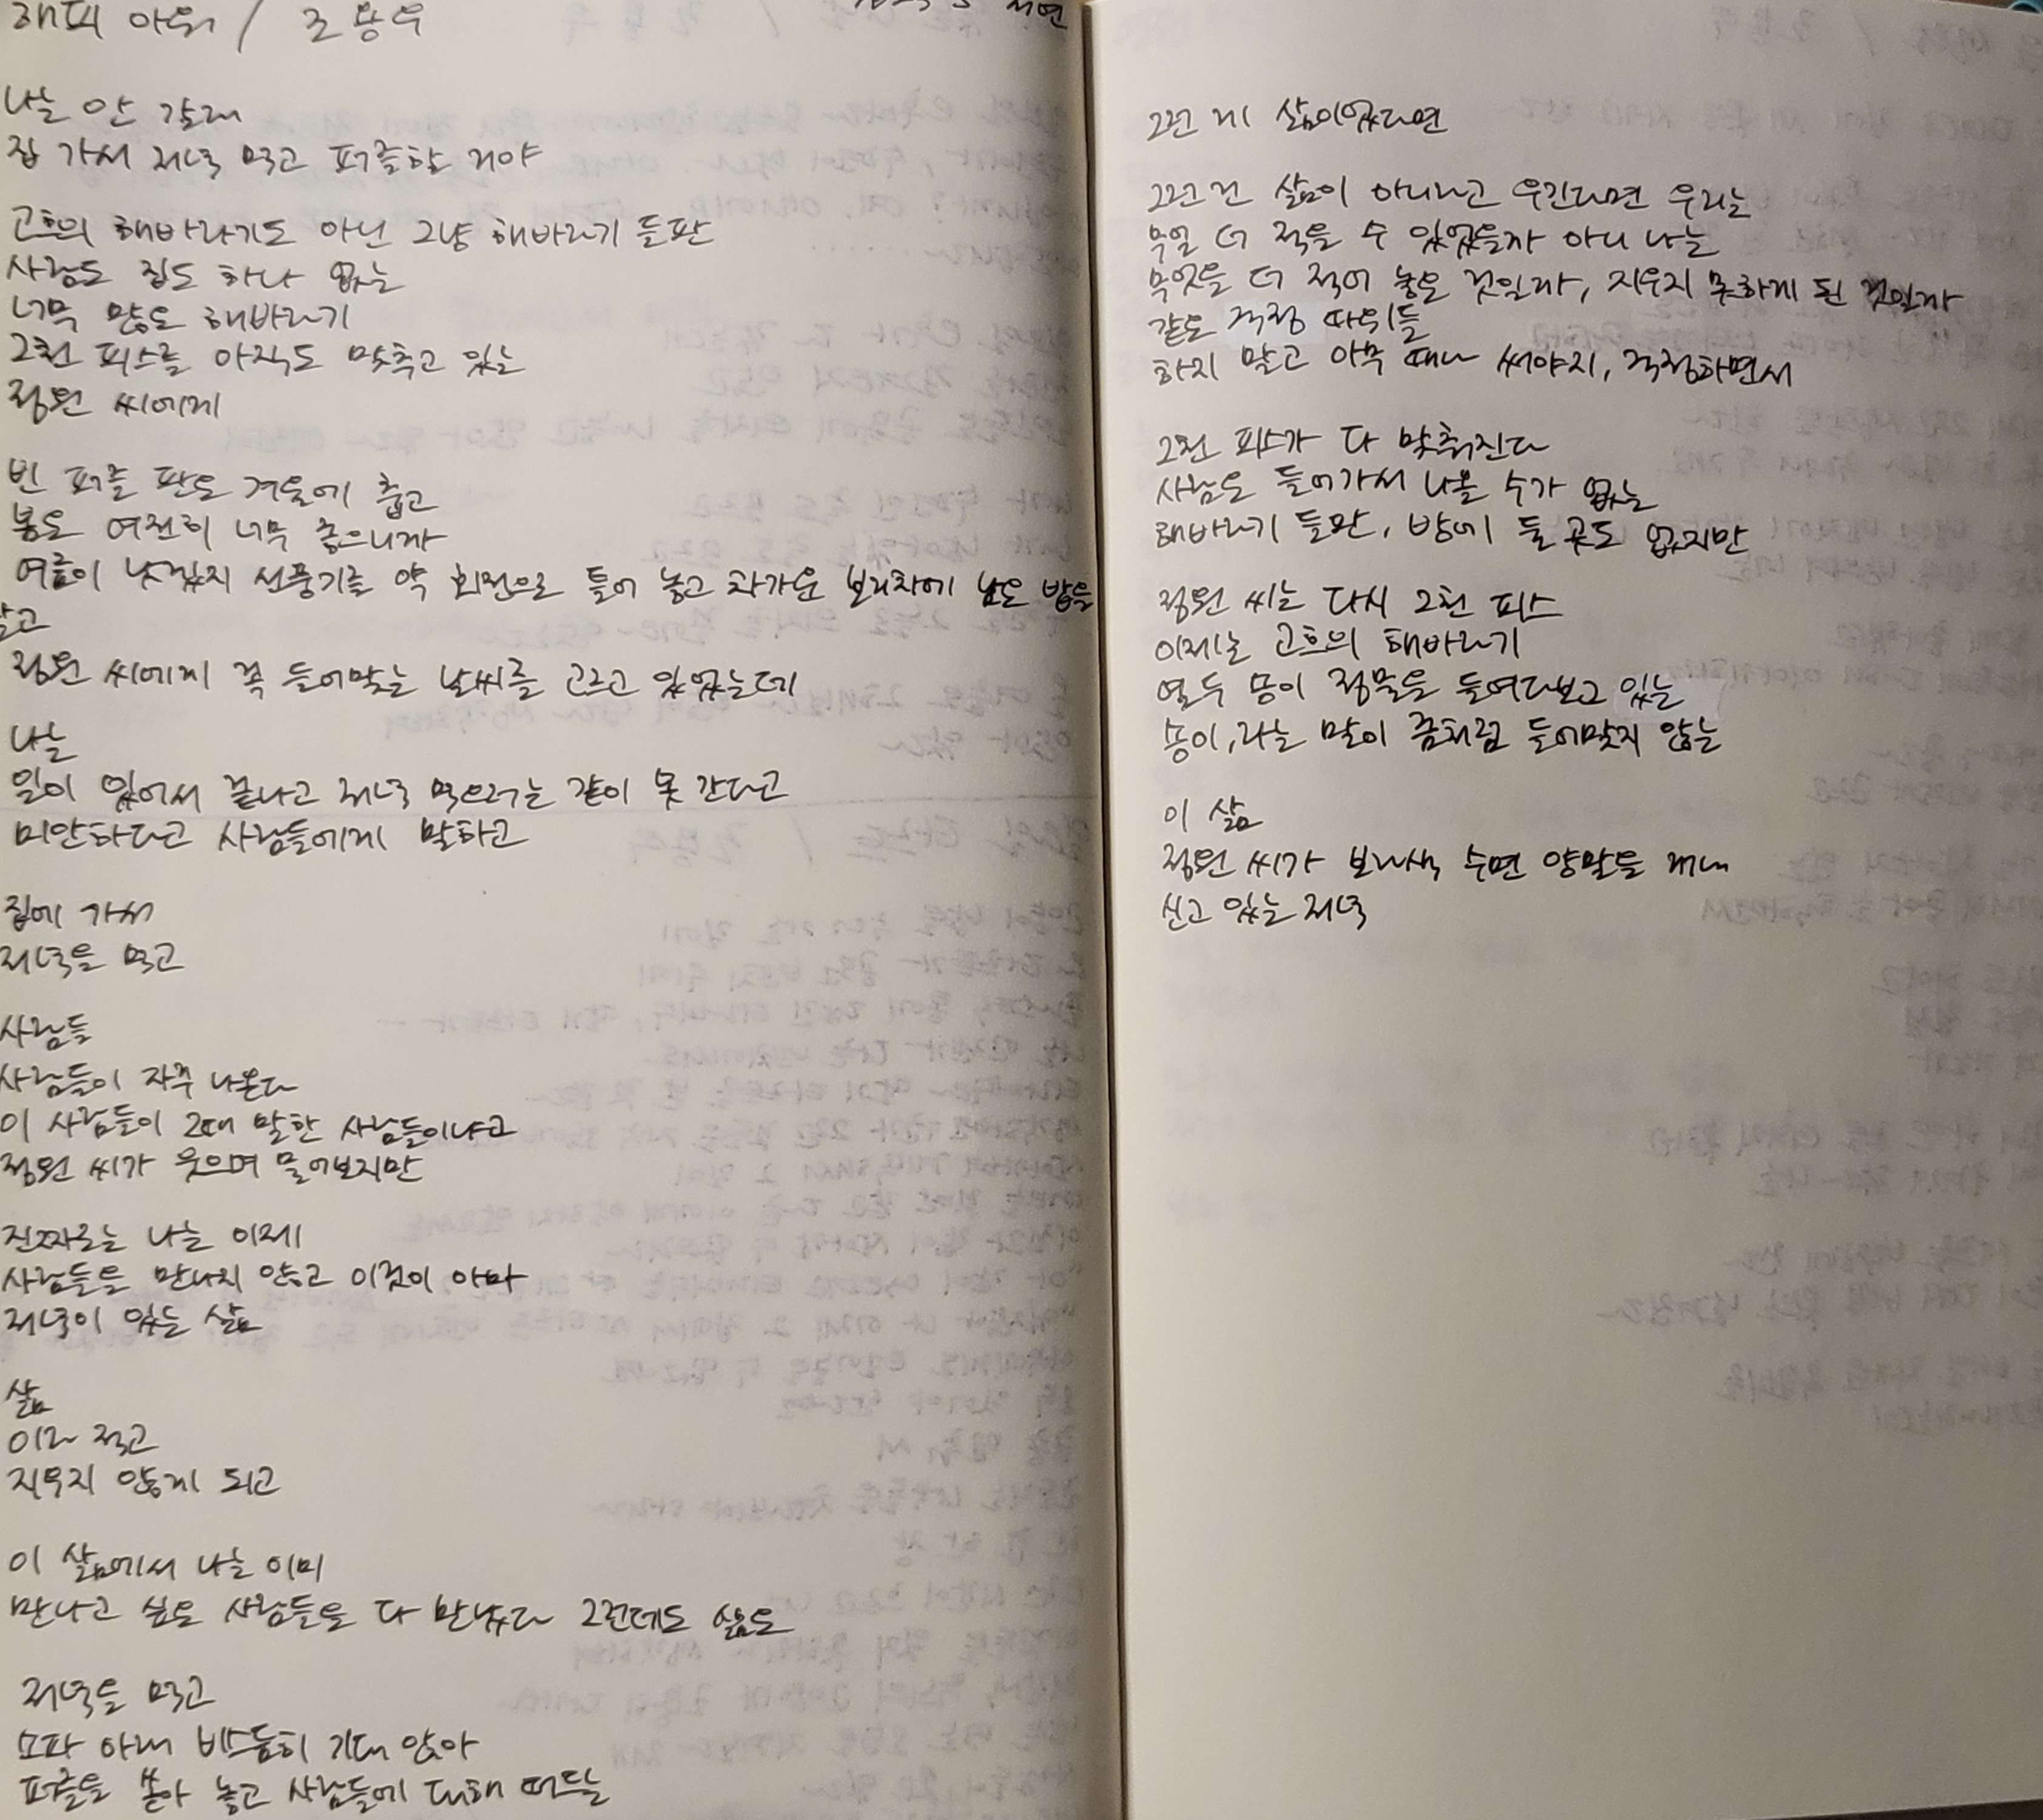 해피 아워 / 조용우
나는 안 갈래
집 가서 저녁 먹고 퍼즐할 거야
고흐의 해바라기도 아닌 그냥 해바라기 들판
사람도 집도 하나 없는
너무 많은 해바라기
2천 피스를 아직도 맞추고 있는
정원 씨에게
빈 퍼즐 판은 겨울에 춥고
봄은 여전히 너무 좋으니까
여름이 낫겠지 선풍기를 약 회전으로 틀어 놓고 차가운 보리차에 남은 밥을
말고
정원 씨에게 꼭 들어맞는 날씨를 고르고 있었는데
나는
일이 있어서 끝나고 저녁 먹으러는 같이 못 간다고
미안하다고 사람들에게 말하고
집에 가서
저녁을 먹고
사람들
사람들이 자주 나온다
이 사람들이 그때 말한 사람들이냐고
정원 씨가 웃으며 물어보지만
진짜로는 나는 이제
사람들을 만나지 않고 이것이 아마
저녁이 있는 삶
삶
이라 적고
지우지 않게 되고
이 삶에서 나는 이미
만나고 싶은 사람들을 다 만났다 그런데도 삶은
저녁을 먹고
소파 아래 비스듬히 기대 앉아
퍼즐을 쏟아 놓고 사람들에 대해 떠드는
그런 게 삶이었다면
그런 건 삶이 아니라고 우긴다면 우리는
무얼 더 적을 수 있었을까 아니 나는
무엇을 더 적어 놓은 것일까, 지우지 못하게 된 것일까
같은 걱정 따위들
하지 말고 아무 때나 써야지, 걱정하면서
2천 피스가 다 맞춰진다
사람은 들어가서 나올 수가 없는
해바라기 들판, 방에 둘 곳도 없지만
정원 씨는 다시 2천 피스
이제는 고흐의 해바라기
열두 송이 정물을 들여다보고 있는
송이, 라는 말이 좀처럼 들어맞지 않는
이 삶
정원 씨가 보라색 수면 양말을 꺼내
신고 있는 저녁